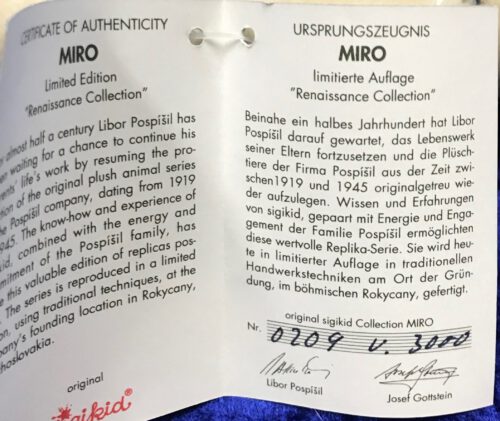 CERTIFICATE OF AUTHENTICITY
MIRO
Limited Edition
"Renaissance Collection"
almost half a century Libor Pospíšil has
waiting for a chance to continue his
life's work by resuming the pro-
of the original plush animal series
Pospíšil company, dating from 1919
1945. The know-how and experience of
combined with the energy and
of the Pospíšil family, has
this valuable edition of replicas pos-
The series is reproduced in a limited
using traditional techniques, at the
founding location in Rokycany,
original
sigikid®
URSPRUNGSZEUGNIS
MIRO
limitierte Auflage
"Renaissance Collection"
Beinahe ein halbes Jahrhundert hat Libor
Pospíšil darauf gewartet, das Lebenswerk
seiner Eltern fortzusetzen und die Plüsch-
tiere der Firma Pospíšil aus der Zeit zwi-
schen1919 und 1945 originalgetreu wie-
der aufzulegen. Wissen und Erfahrungen
von sigikid, gepaart mit Energie und Enga-
gement der Familie Pospíšil ermöglichten
diese wertvolle Replika-Serie. Sie wird heu-
te in limitierter Auflage in traditionellen
Handwerkstechniken am Ort der Grün-
dung, im böhmischen Rokycany, gefertigt.
original sigikid Collection MIRO
Nr. 0209 v. 3000
Libor Pospíšil
Josef Gottstein